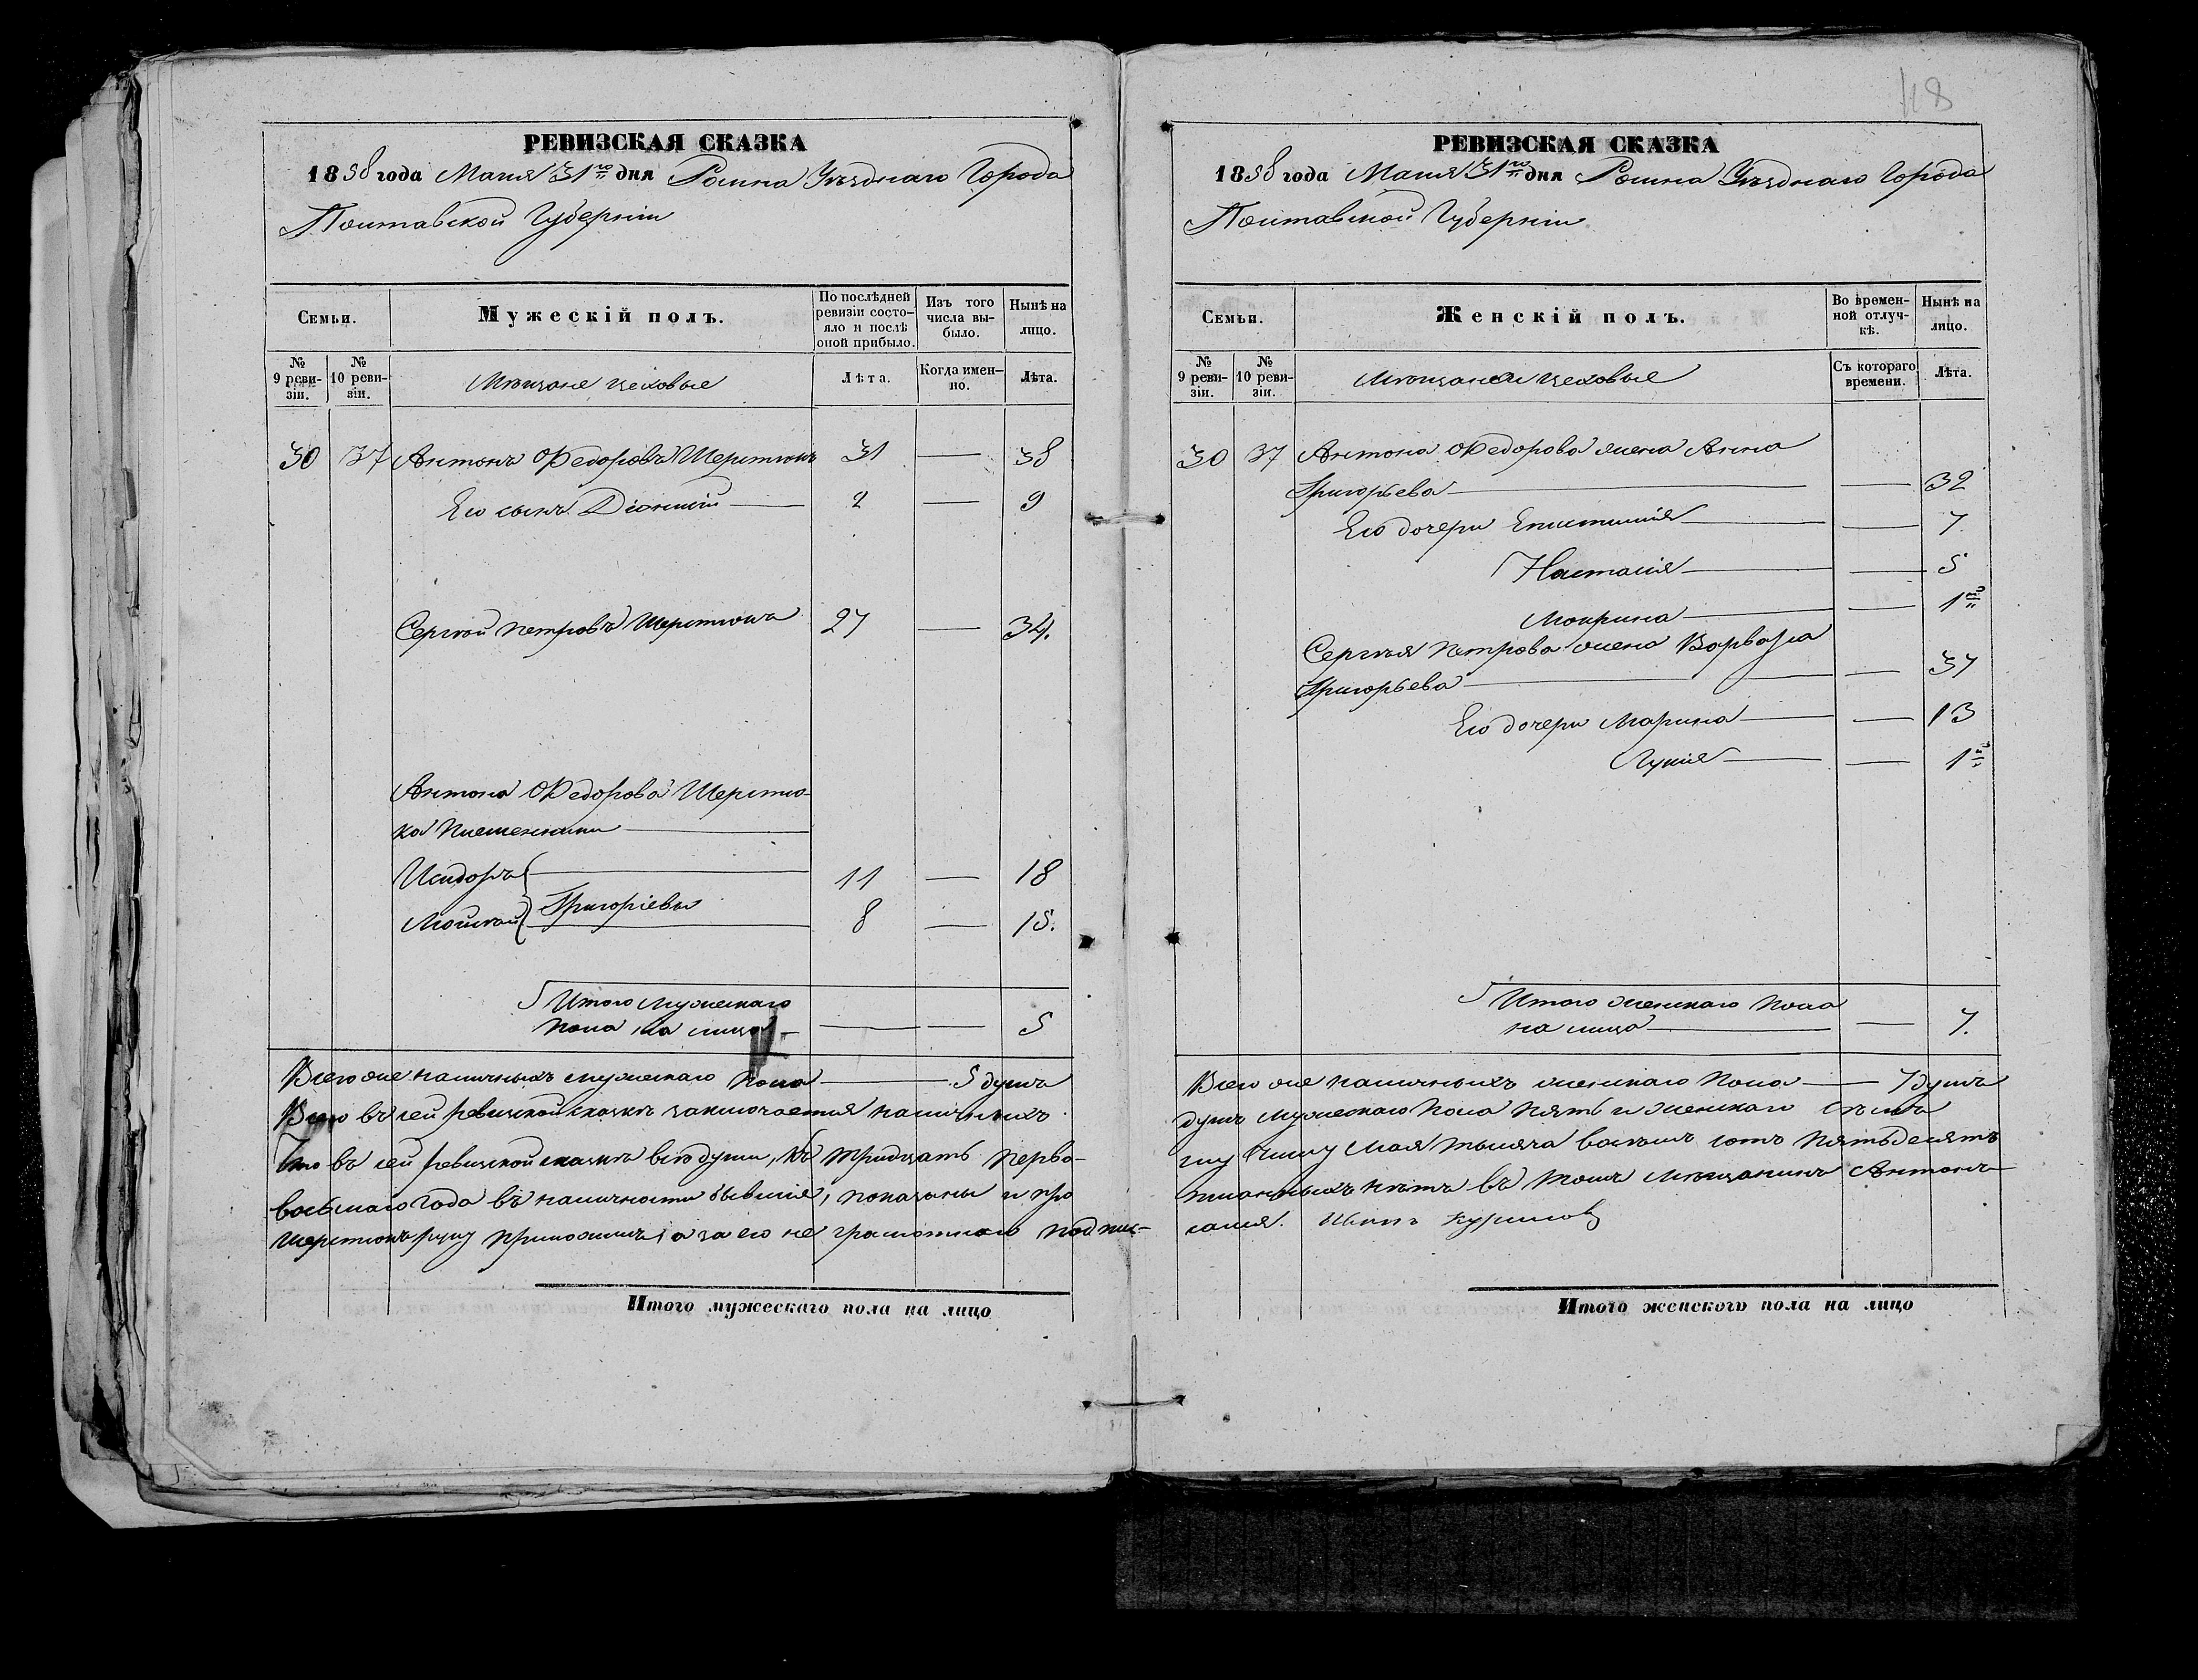 118
РЕВИЗСКАЯ СКАЗКА
1858 года Маия 31го дня Ромна Уѣзднаго Города
Полтавской Губерніи
Семьи.
Мужескій полъ.
По послѣдней ревизіи состояло и послѣ оной прибыло.
Изъ того числа выбыло.
Нынѣ на лицо.
№ 9 ревизіи.
№ 10 ревизіи.
Мѣщане цеховые
Лѣта.
Когда именно.
Лѣта.
30 37 Антонъ Федоровъ Шерстюкъ 31 — 38
Его сынъ Діонисій — 2 — 9
Сергѣй Петровъ Шерстюкъ 27 — 34.
Антона Федорова Шерстю-
ка племенники —
Исидоръ — 11 — 18
Григоріевы
Моисей — 8 — 15.
Итого мужескаго
пола на лицо — — — 5
Всего же наличныхъ мужескаго пола — 5 душъ
Всего въ сей ревизской сказкѣ заключается наличныхъ
Что въ сей ревизской сказкѣ всѣ души, къ тридцать перво-
восьмаго года въ наличности бывшія, показаны и про
Шерстюкъ руку приложилъ, а за его не грамотнаго подпи-
Итого мужескаго пола на лицо
РЕВИЗСКАЯ СКАЗКА
1858 года Маия 31го дня Ромна Уѣзднаго Города
Полтавской Губерніи
Семьи.
Женскій полъ.
Во временной отлучкѣ.
Нынѣ на лицо.
№ 9 ревизіи.
№ 10 ревизіи.
Мѣщане цеховые
Съ котораго времени.
Лѣта.
30 37 Антона Федорова жена Анна
Григорьева — — 32
Его дочери Епистимия — — 7
Настасія — — 5
Мокрина — — 1
Сергѣя Петрова жена Варвара
Григорьева — — 37
Его дочери Марина — — 13
Лукія — — 1
Итого женскаго пола
на лицо — — 7.
Всего же наличныхъ женскаго пола — 7 душъ
душъ мужескаго пола пять и женскаго семь
му числу Мая тысяча восемь сотъ пятьдесятъ
писанныхъ нѣтъ въ томъ мѣщанинъ Антонъ
сался.
Итого женского пола на лицо